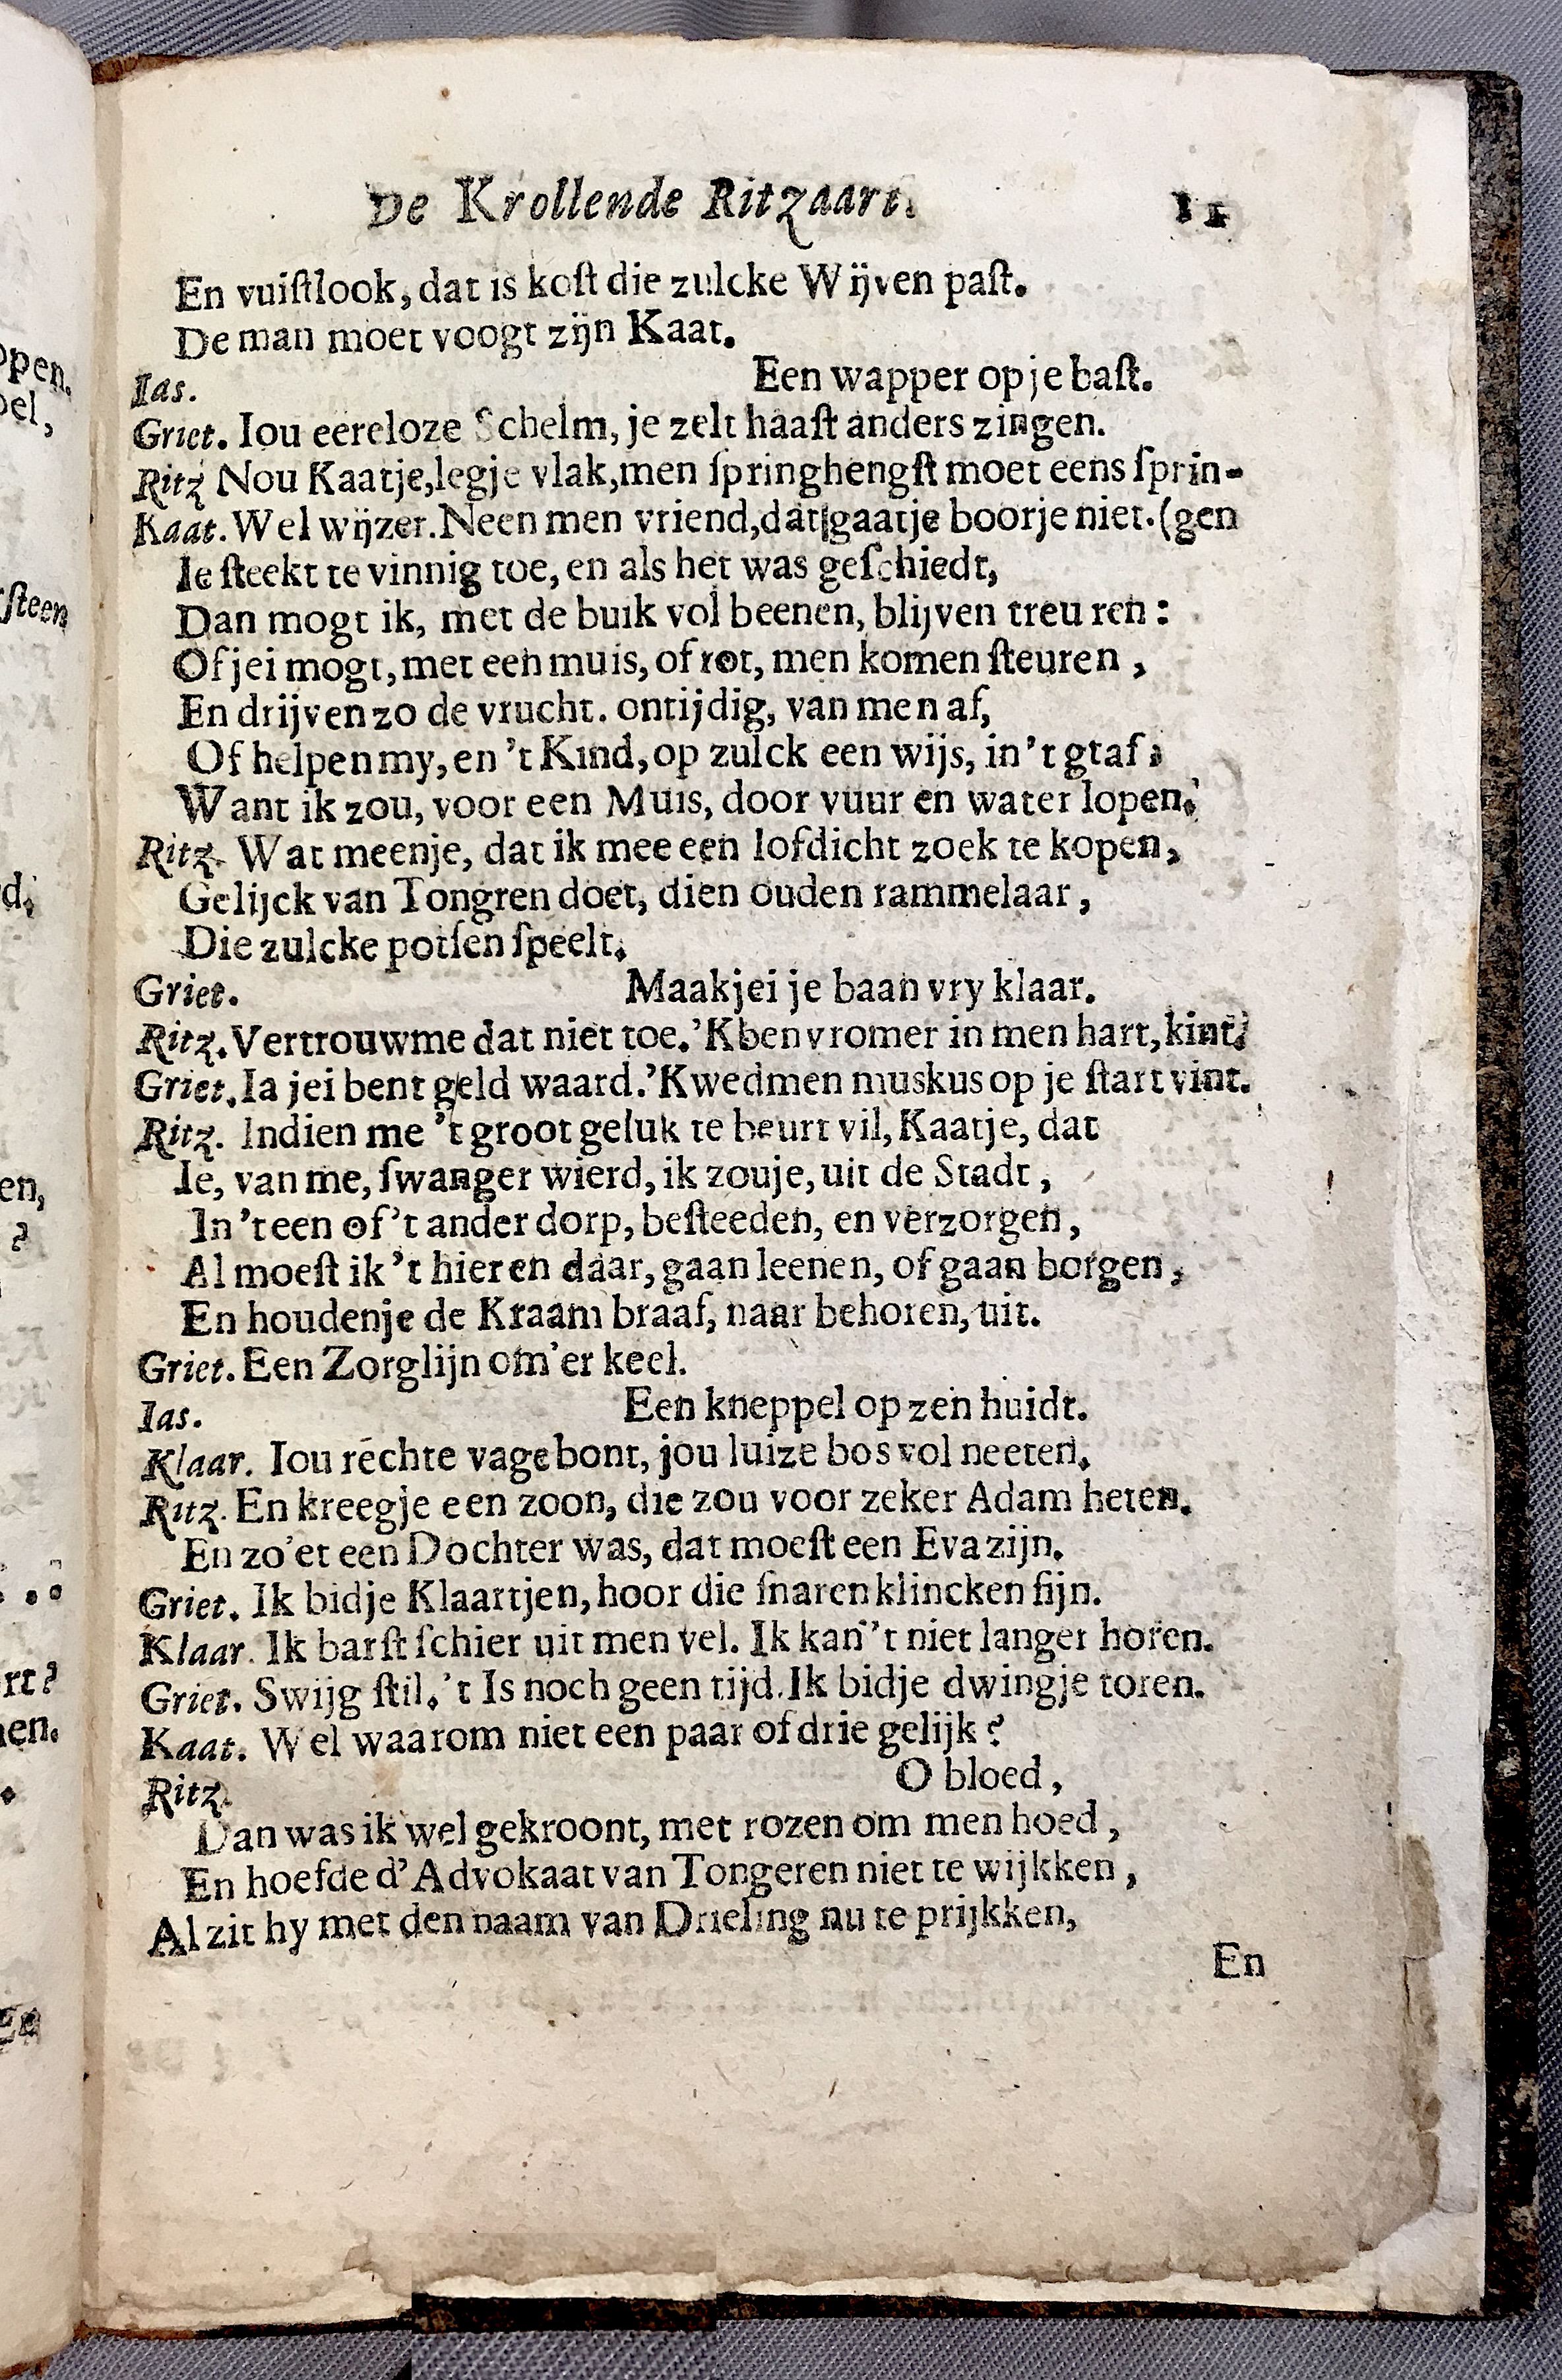 De Krollende Ritzaart. 11
En vuiſtlook, dat is koſt die zulcke Wijven paſt.
De man moet voogt zijn Kaat.
Ias. Een wapper op je baſt.
Griet. Iou eereloze Schelm, je zelt haaſt anders zingen.
Ritz Nou Kaatje, legje vlak, men ſpringhengſt moet eens ſprin-
Kaat. Wel wijzer. Neen men vriend, dat gaatje boorje niet. (gen
Ie ſteekt te vinnig toe, en als het was geſchiedt,
Dan mogt ik, met de buik vol beenen, blijven treu ren:
Of jei mogt, met een muis, of rot, men komen ſteuren,
En drijven zo de vrucht. ontijdig, van men af,
Of helpen my, en 't Kind, op zulck een wijs, in 't gtaf;
Want ik zou, voor een Muis, door vuur en water lopen.
Ritz. Wat meenje, dat ik mee een lofdicht zoek te kopen,
Gelijck van Tongren doet, dien ouden rammelaar,
Die zulcke potſen ſpeelt.
Griet. Maakjei je baan vry klaar.
Ritz. Vertrouwme dat niet toe. 'K ben vromer in men hart, kint.
Griet. Ia jei bent geld waard. 'K wed men muskus op je ſtart vint.
Ritz. Indien me 't groot geluk te beurt vil, Kaatje, dat
Ie, van me, ſwanger wierd, ik zouje, uit de Stadt,
In 't een of 't ander dorp, beſteeden, en verzorgen,
Al moeſt ik 't hier en daar, gaan leenen, of gaan borgen,
En houdenje de Kraam braaf, naar behoren, uit.
Griet. Een Zorglijn om'er keel.
Ias. Een kneppel op zen huidt.
Klaar. Iou rechte vagebont, jou luize bos vol neeten.
Ritz. En kreegje een zoon, die zou voor zeker Adam heten.
En zo'et een Dochter was, dat moeſt een Eva zijn.
Griet. Ik bidje Klaartjen, hoor die ſnaren klincken fijn.
Klaar. Ik barſt ſchier uit men vel. Ik kan 't niet langer horen.
Griet. Swijg ſtil. 't Is noch geen tijd. Ik bidje dwingje toren.
Kaat. Wel waarom niet een paar of drie gelijk?
Ritz. O bloed,
Dan was ik wel gekroont, met rozen om men hoed,
En hoefde d'Advokaat van Tongeren niet te wijkken,
Al zit hy met den naam van Drieling nu te prijkken,
En